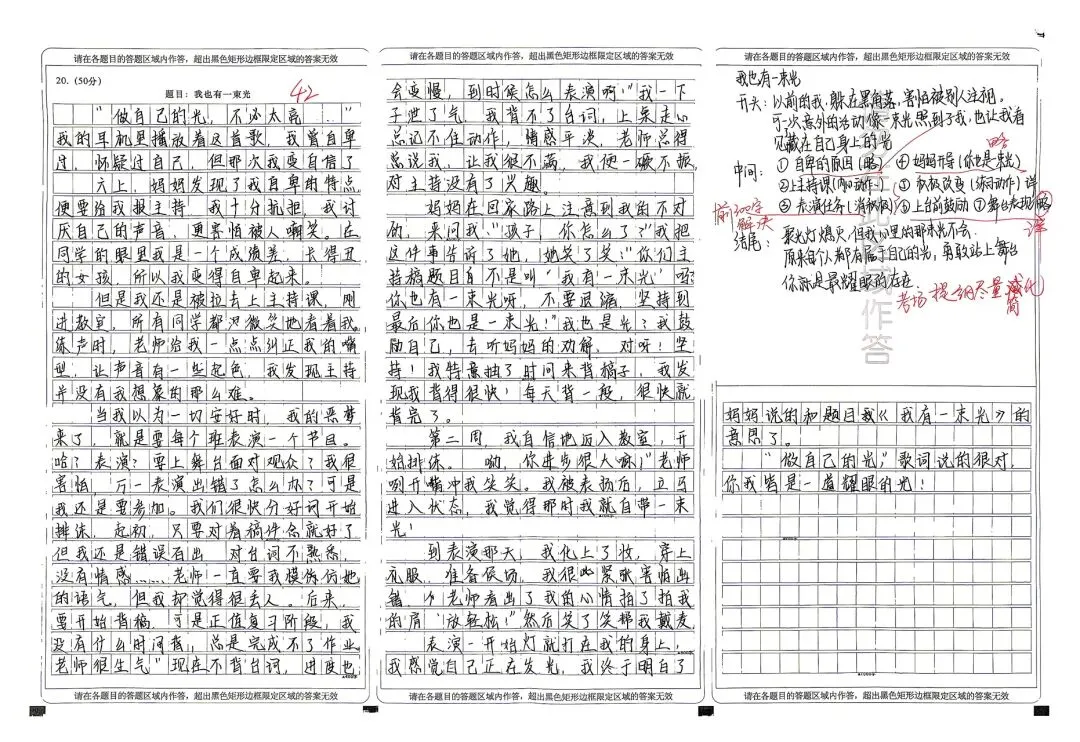 请在各题目的答题区域内作答，超出黑色矩形边框限定区域的答案无效
20.（50分）
题目：我也有一束光
42
"做自己的光，不必太亮……"
我的耳机里播放着这首歌，我曾自卑
过，怀疑过自己，但那次我变自信了
六上，妈妈发现了我自卑的特点
便要给我报主持，我十分抗拒，我讨
厌自己的声音，更害怕被人嘲笑。在
同学的眼里我是一个成绩差，长得丑
的女孩，所以我变得自卑起来。
但是我还是被拉去上主持课，刚
进教室，所有同学都微笑地看着我。
练声时，老师给我一点点纠正我的嘴
型，让声音有一些起色，我发现主持
并没有我想象的那么难。
当我以为一切安好时，我的恶梦
来了，就是要每个班表演一个节目。
啥？表演？要上舞台面对观众？我很
害怕，万一表演出错了怎么办？可是
我还是要参加。我们很快分好词开始
排练，起初，只要对着稿件念就好了
但我还是错误百出，对台词不熟悉，
没有情感……老师一直要我模仿她
的语气，但我却觉得很丢人。后来，
要开始背稿，可是正值复习阶段，我
没有什么时间背，总是完成不了作业
老师很生气"现在不背台词，进度也
请在各题目的答题区域内作答，超出黑色矩形边框限定区域的答案无效
请在各题目的答题区域内作答，超出黑色矩形边框限定区域的答案无效
会变慢，到时候怎么表演啊！"我一下
子泄了气，我背不了台词，上桌走心
总记不住动作，情感平淡，老师总得
总说我，让我很不满，我便一蹶不振，
对主持没有了兴趣。
妈妈在回家路上注意到我的不对
劲，来问我"孩子，你怎么了？"我把
这件事告诉了他，她笑了笑"你们主
持稿题目自不是叫"我有一束光"吗？
你也有一束光呀，不要退缩，坚持到
最后你也是一束光！"我也是光？我鼓
励自己，去听妈妈的劝解，对呀！坚
持！我特意抽了时间来背稿子，我发
现我背得很快！每天背一段，很快就
背完了。
第二周，我自信地迈入教室，开
始排练。"呦，你进步很大嘛！"老师
咧开嘴冲我笑笑。我被表扬后，立马
进入状态，我觉得那时我就自带一束
光！
到表演那天，我化上了妆，穿上
礼服，准备候场，我很紧张害怕出
错，老师看出了我的心情拍了拍我
的肩"放轻松！"然后笑了笑帮我戴麦
表演一开始灯就打在我的身上，
我感觉自己正在发光，我终于明白了
请在各题目的答题区域内作答，超出黑色矩形边框限定区域的答案无效
请在各题目的答题区域内作答，超出黑色矩形边框限定区域的答案无效
我也有一束光
开头：以前的我，躲在黑角落，害怕被别人注视，
可一次意外的活动像一束光照到了我，也让我看
见藏在自己身上的光
略
中间：①自卑的原因（略）④妈妈开导（你也是束光）
②上主持课（动作）⑤积极改变（练习动作）详
③表演任务（消极）⑥上台前鼓励⑦舞台表现（略）
详
前300字
解决
结尾：聚光灯熄灭，但我心里的那束光不会
原来每个人都有属于自己的光，勇敢站上舞台
你就是最耀眼的存在
考场提纲尽量简化
作答
妈妈说的和题目我《我有一束光》的
意思了。
"做自己的光，"歌词说的很对，
你我皆是一道耀眼的光！
请在各题目的答题区域内作答，超出黑色矩形边框限定区域的答案无效